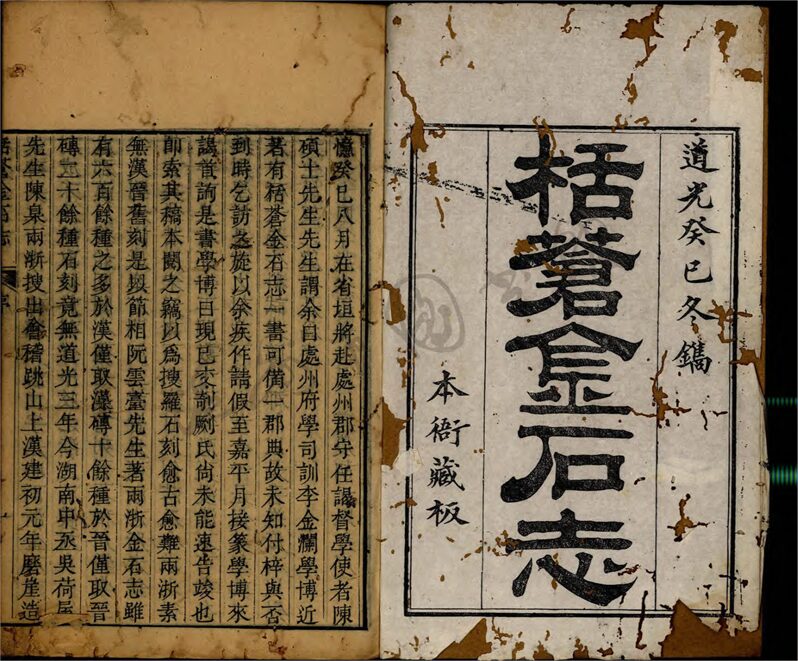 道光癸巳冬鐫
栝蒼金石志
本衙藏板
憶癸巳八月在省垣將赴處州郡守任謁督學使者陳
碩士先生先生謂余曰處州府學司訓李金瀾學博近
著有栝蒼金石志一書可備一郡典故未知付梓與否
到時乞訪之旋以余疾作請假至嘉平月接篆學博來
謁首詢是書學博曰現已交剞劂氏尚未能速告竣也
即索其稿本閱之竊以為搜羅石刻愈古愈難兩浙素
無漢晉舊刻是以節相阮雲臺先生著兩浙金石志雖
有六百餘種之多於漢僅取漢磚十餘種於晉僅取晉
磚二十餘種石刻竟無道光三年今湖南中丞吳荷屋
先生陳臬兩浙搜出會稽跳山上漢建初元年磨崖造
栝蒼金石志 序